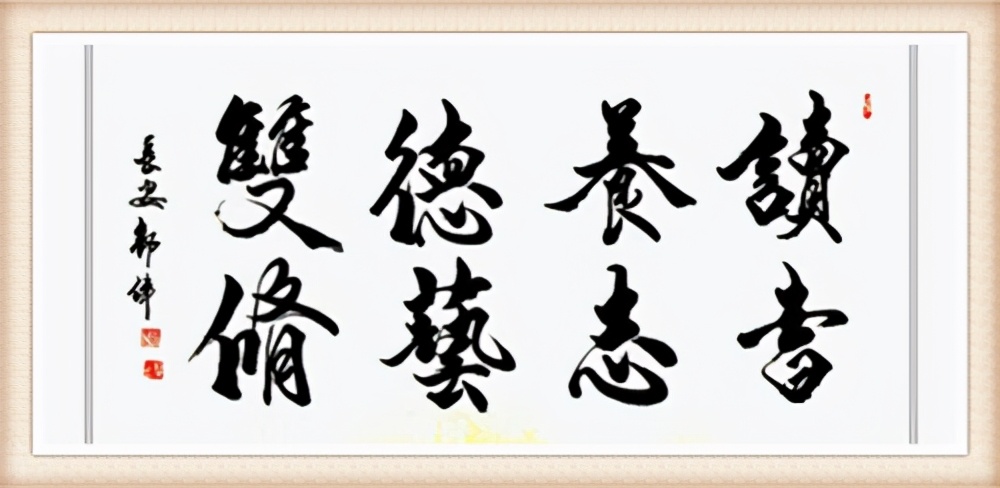 讀書
養志
德藝
雙脩
長安偉